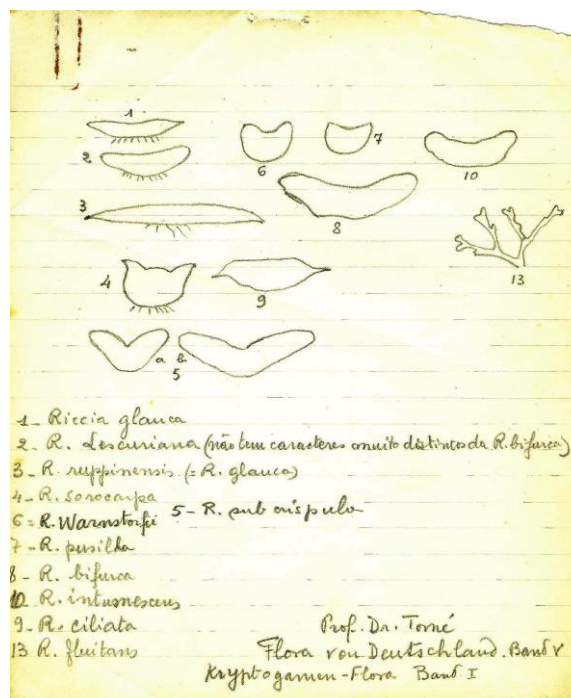 1
2
3
4
6
7
10
8
9
13
a b
5
1- Riccia glauca
2- R. Lescuriana (não tem caracteres muito distintos da R. bifurca)
3- R. ruppinensis (= R. glauca)
4- R. sorocarpa
5- R. subcrispula
6= R. Warnstorfii
7- R. pusilla
8- R. bifurca
10 R. intumescens
9- R. ciliata
13 R. fluitans
Prof. Dr. Tomé
Flora von Deutschland. Band V
Kryptogamen-Flora Band I